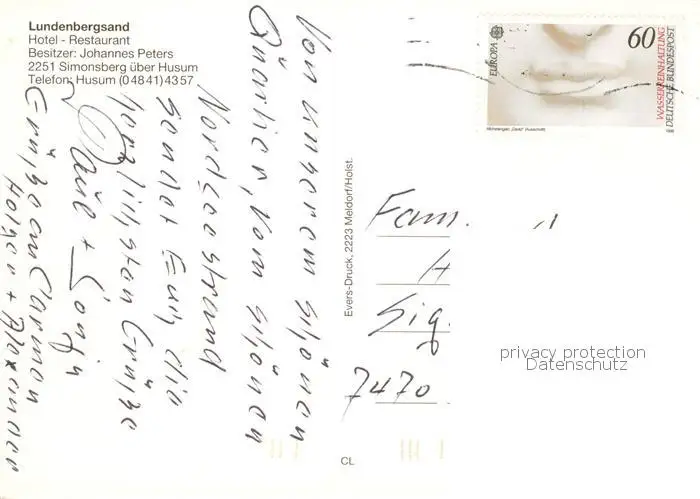 Lundenbergsand
Hotel - Restaurant
Besitzer: Johannes Peters
2251 Simonsberg über Husum
Telefon: Husum (0 48 41) 43 57
Von unserem schönen
Quartier, vom schönen
Nordseestrand
sendet Euch die
herzlichsten Grüße
Paul + Sonja
Grüße an Carmen
Holger + Alexander
Evers-Druck, 2223 Meldorf/Holst.
CL
EUROPA
60
WASSERREINHALTUNG
DEUTSCHE BUNDESPOST
Michelangelo, „David“ (Ausschnitt)
1986
Fam.
H
Sig.
7470
privacy protection
Datenschutz